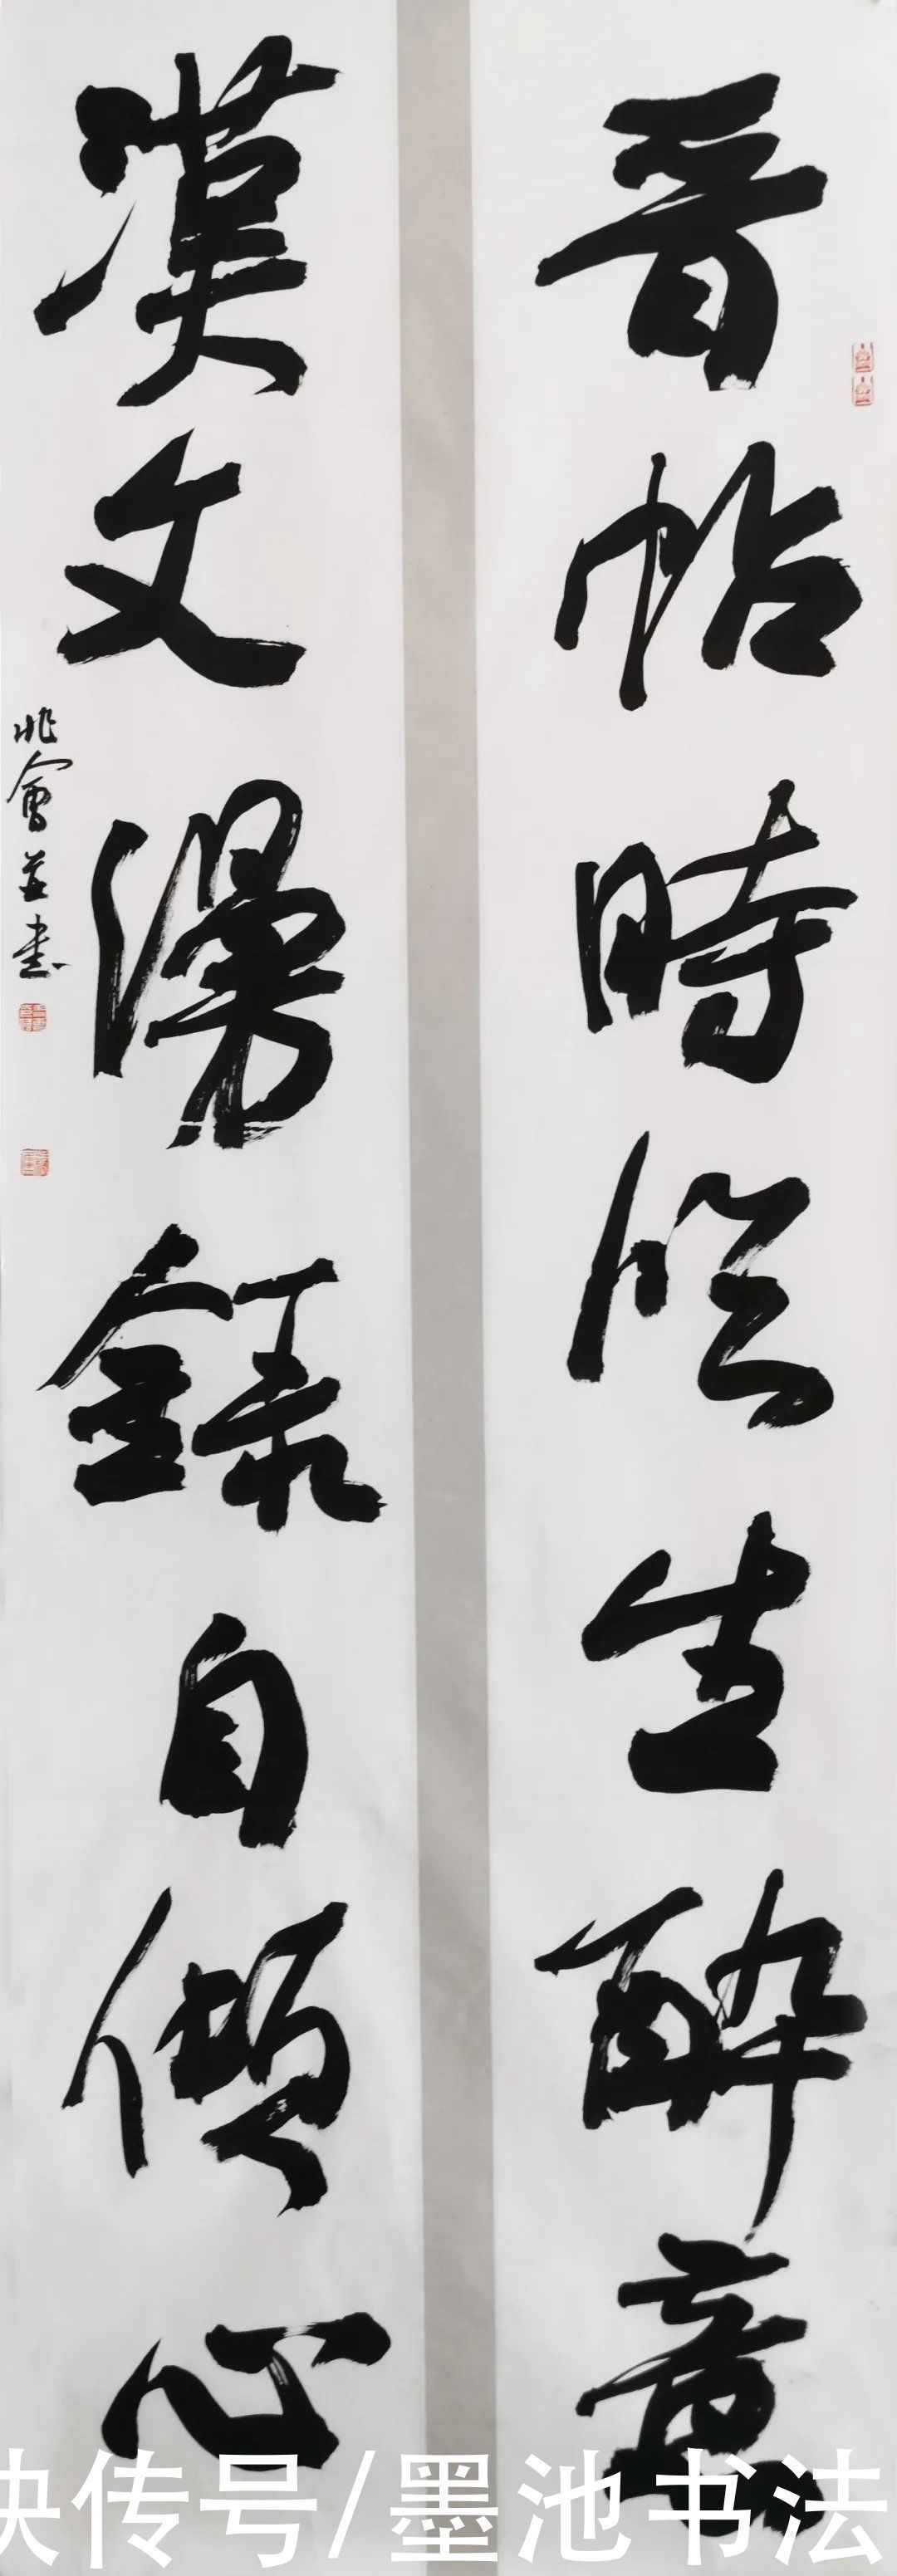 晋帖時臨生醉意
漢文漫録自傾心
兆會並書
快传号/墨池书法